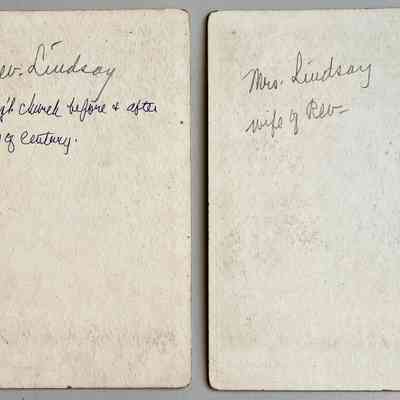 ev. Lindsay
gh church before & after
of Century.
Mrs. Lindsay
wife of Rev-